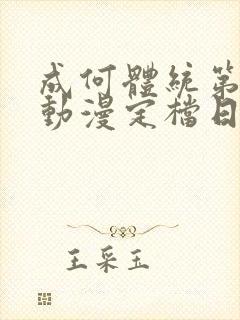 成何體統第
動漫定檔日
王采玉